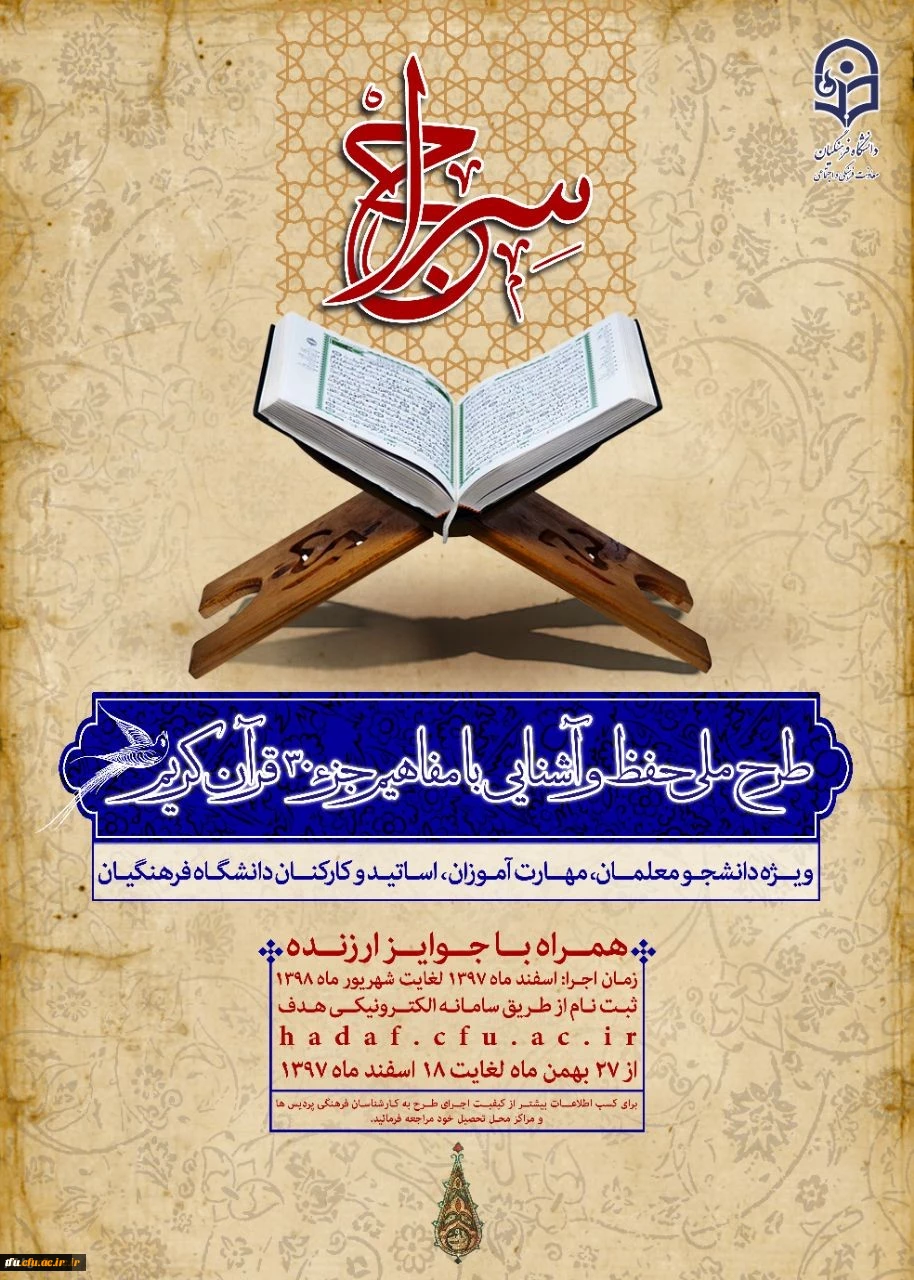 سِراج
دانشگاه فرهنگیان
معاونت فرهنگی و اجتماعی
طرح ملی حفظ و آشنایی با مفاهیم جزء ۳۰ قرآن کریم
ویژه دانشجو معلمان، مهارت آموزان، اساتید و کارکنان دانشگاه فرهنگیان
همراه با جوایز ارزنده
زمان اجرا: اسفند ماه ۱۳۹۷ لغایت شهریور ماه ۱۳۹۸
ثبت نام از طریق سامانه الکترونیکی هدف
hadaf.cfu.ac.ir
از ۲۷ بهمن ماه لغایت ۱۸ اسفند ماه ۱۳۹۷
برای کسب اطلاعات بیشتر از کیفیت اجرای طرح به کارشناسان فرهنگی پردیس ها
و مراکز محل تحصیل خود مراجعه فرمائید.